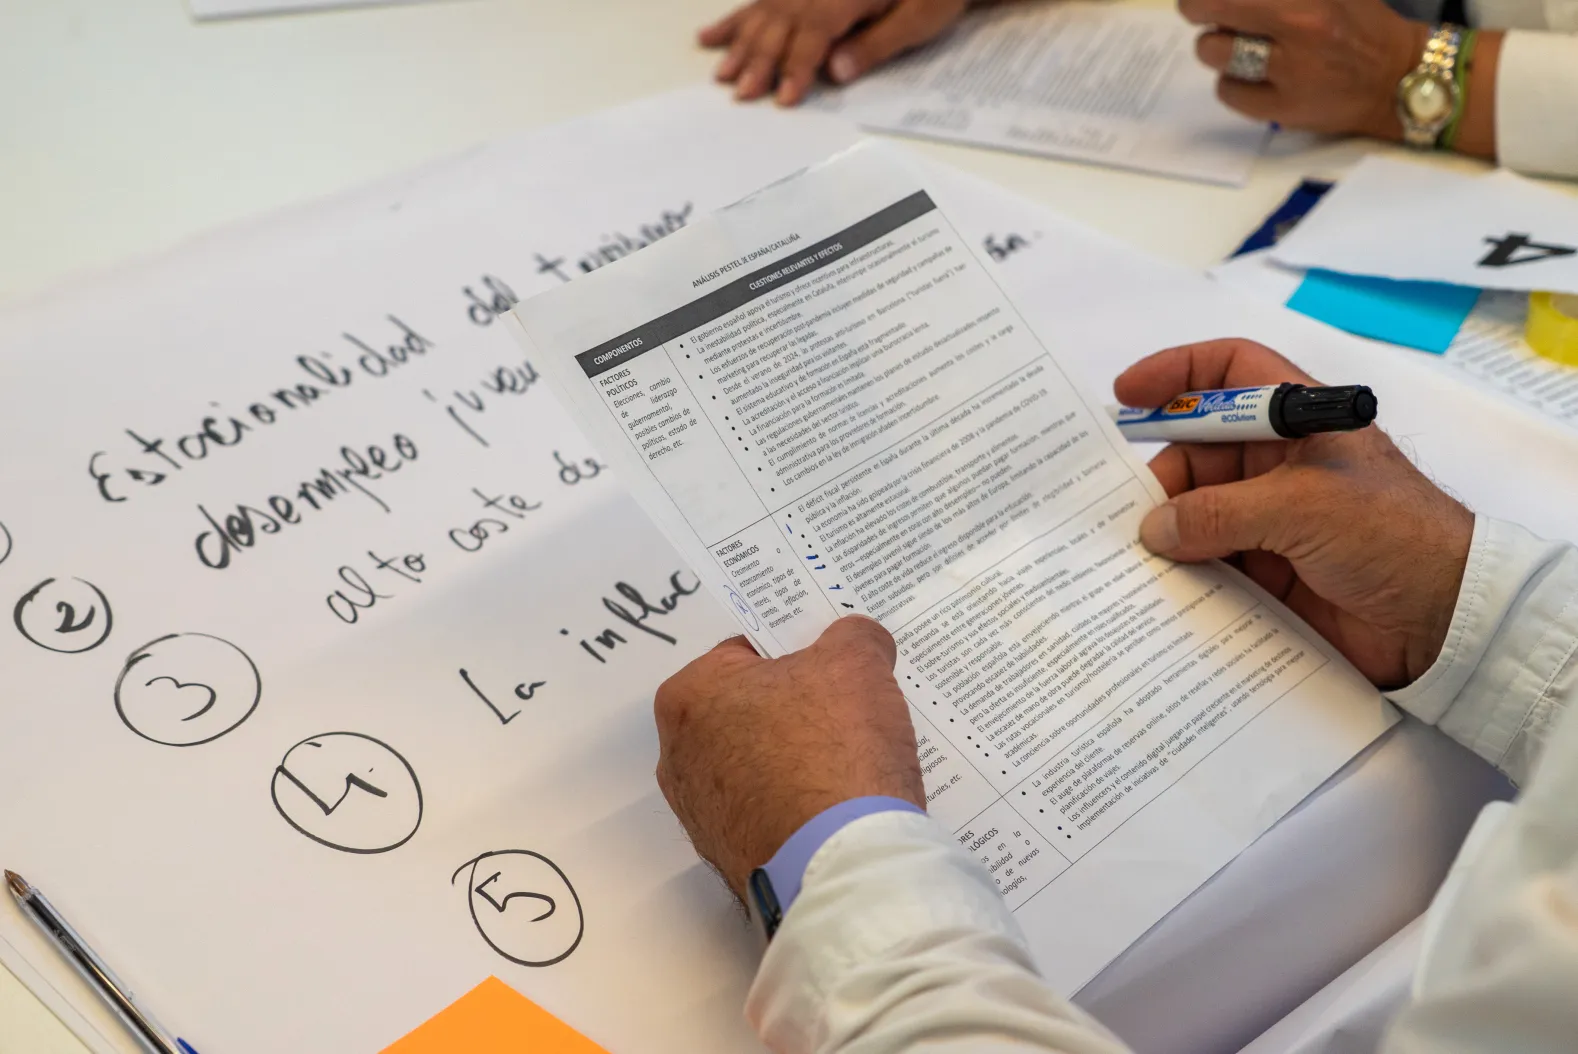 Estacionalidad del turismo
desempleo juven
alto coste de
La inflac
2
3
4
5
4
BIC Velleda
ecolutions
ANÁLISIS PESTEL DE ESPAÑA/CATALUÑA
COMPONENTES
CUESTIONES RELEVANTES Y EFECTOS
FACTORES
POLÍTICOS
Elecciones, cambio
de liderazgo
gubernamental,
posibles cambios de
políticos, estado de
derecho, etc.
El gobierno español apoya el turismo y ofrece incentivos para infraestructuras.
La inestabilidad política, especialmente en Cataluña, interrumpe ocasionalmente el turismo
mediante protestas e incertidumbre.
Los esfuerzos de recuperación post-pandemia incluyen medidas de seguridad y campañas de
marketing para recuperar las llegadas.
Desde el verano de 2024, las protestas anti-turismo en Barcelona ("turistas fuera") han
aumentado la inseguridad para los visitantes.
El sistema educativo y de formación en España está fragmentado.
La acreditación y el acceso a financiación implican una burocracia lenta.
La financiación para la formación es limitada.
Las regulaciones gubernamentales mantienen los planes de estudio desactualizados respecto
a las necesidades del sector turístico.
El cumplimiento de normas de licencias y acreditaciones aumenta los costes y la carga
administrativa para los proveedores de formación.
Los cambios en la ley de inmigración añaden incertidumbre.
FACTORES
ECONÓMICOS
Crecimiento o
estancamiento
económico, tipos de
interés, tipos de
cambio, inflación,
desempleo, etc.
El déficit fiscal persistente en España durante la última década ha incrementado la deuda
pública y la inflación.
La economía ha sido golpeada por la crisis financiera de 2008 y la pandemia de COVID-19.
El turismo es altamente estacional.
La inflación ha elevado los costes de combustible, transporte y alimentos.
Las disparidades de ingresos permiten que algunos puedan pagar formación, mientras que
otros —especialmente en zonas con alto desempleo— no pueden.
El desempleo juvenil sigue siendo de los más altos de Europa, limitando la capacidad de los
jóvenes para pagar formación.
El alto coste de vida reduce el ingreso disponible para la educación.
Existen subsidios, pero son difíciles de acceder por límites de elegibilidad y barreras
administrativas.
España posee un rico patrimonio cultural.
La demanda se está orientando hacia viajes experienciales, locales y de bienestar,
especialmente entre generaciones jóvenes.
El sobre-turismo y sus efectos sociales y medioambientales.
Los turistas son cada vez más conscientes del medio ambiente,
sostenible y responsable.
La población española está envejeciendo mientras el grupo en edad laboral
provocando escasez de habilidades.
La demanda de trabajadores en sanidad, cuidado de mayores y hostelería está en
pero la oferta es insuficiente, especialmente en roles cualificados.
El envejecimiento de la fuerza laboral agrava los desajustes de habilidades.
La escasez de mano de obra puede degradar la calidad del servicio.
Las rutas vocacionales en turismo/hostelería se perciben como menos prestigiosas que las
académicas.
La conciencia sobre oportunidades profesionales en turismo es limitada.
La industria turística española ha adoptado herramientas digitales para mejorar la
experiencia del cliente.
El auge de plataformas de reservas online, sitios de reseñas y redes sociales ha facilitado la
planificación de viajes.
Los influencers y el contenido digital juegan un papel creciente en el marketing de destinos.
Implementación de iniciativas de "ciudades inteligentes", usando tecnología para mejorar